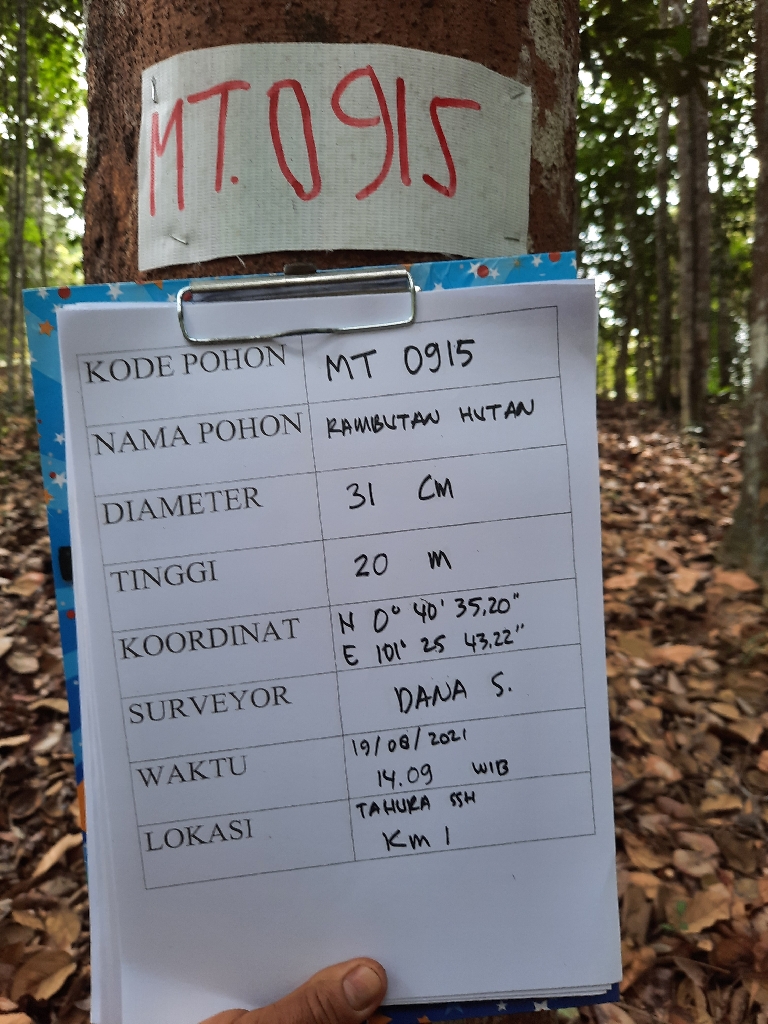 MT.0915
KODE POHON MT 0915
NAMA POHON RAMBUTAN HUTAN
DIAMETER 31 CM
TINGGI 20 M
KOORDINAT N 0° 40' 35,20"
E 101° 25 43,22"
SURVEYOR DANA S.
WAKTU 19/08/2021
14.09 WIB
LOKASI TAHURA SSH
Km 1